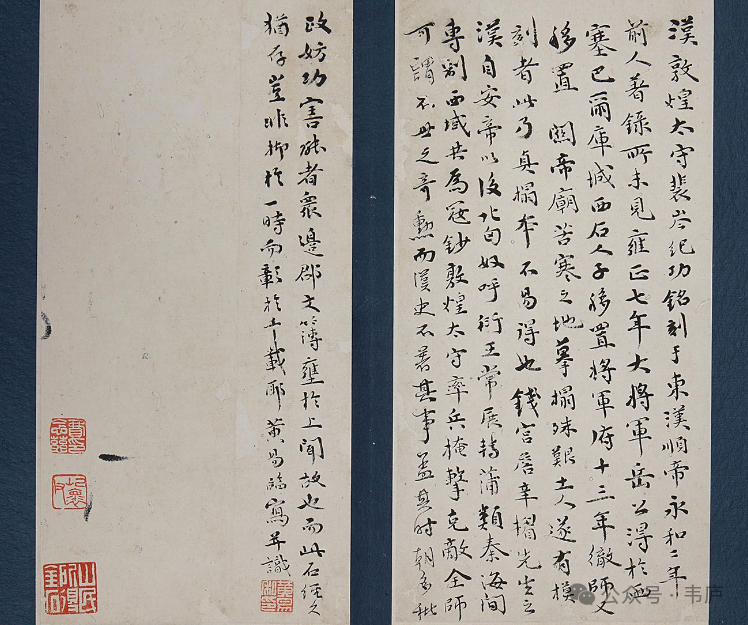 漢敦煌太守裴岑紀功銘刻于東漢順帝永和二年
前人著錄所未見雍正七年大將軍岳公得於西
塞巴爾庫城西石人子移置將軍府十三年徹師又
移置關帝廟苦寒之地摹搨殊艱土人遂有模
刻者此乃真搨本不易得也錢宮詹辛楣先生云
漢自安帝以後北匈奴呼衍王常展轉蒲類秦海間
專制西域共為寇鈔敦煌太守率兵掩擊克敵全師
可謂不世之奇勲而漢史不著其事蓋其時朝多秕
政妨功害能者眾邊郡文簿壅於上聞故也而此石經久
猶存豈非抑於一時而彰於千載耶黃易臨寫并識
公众号·韦庐